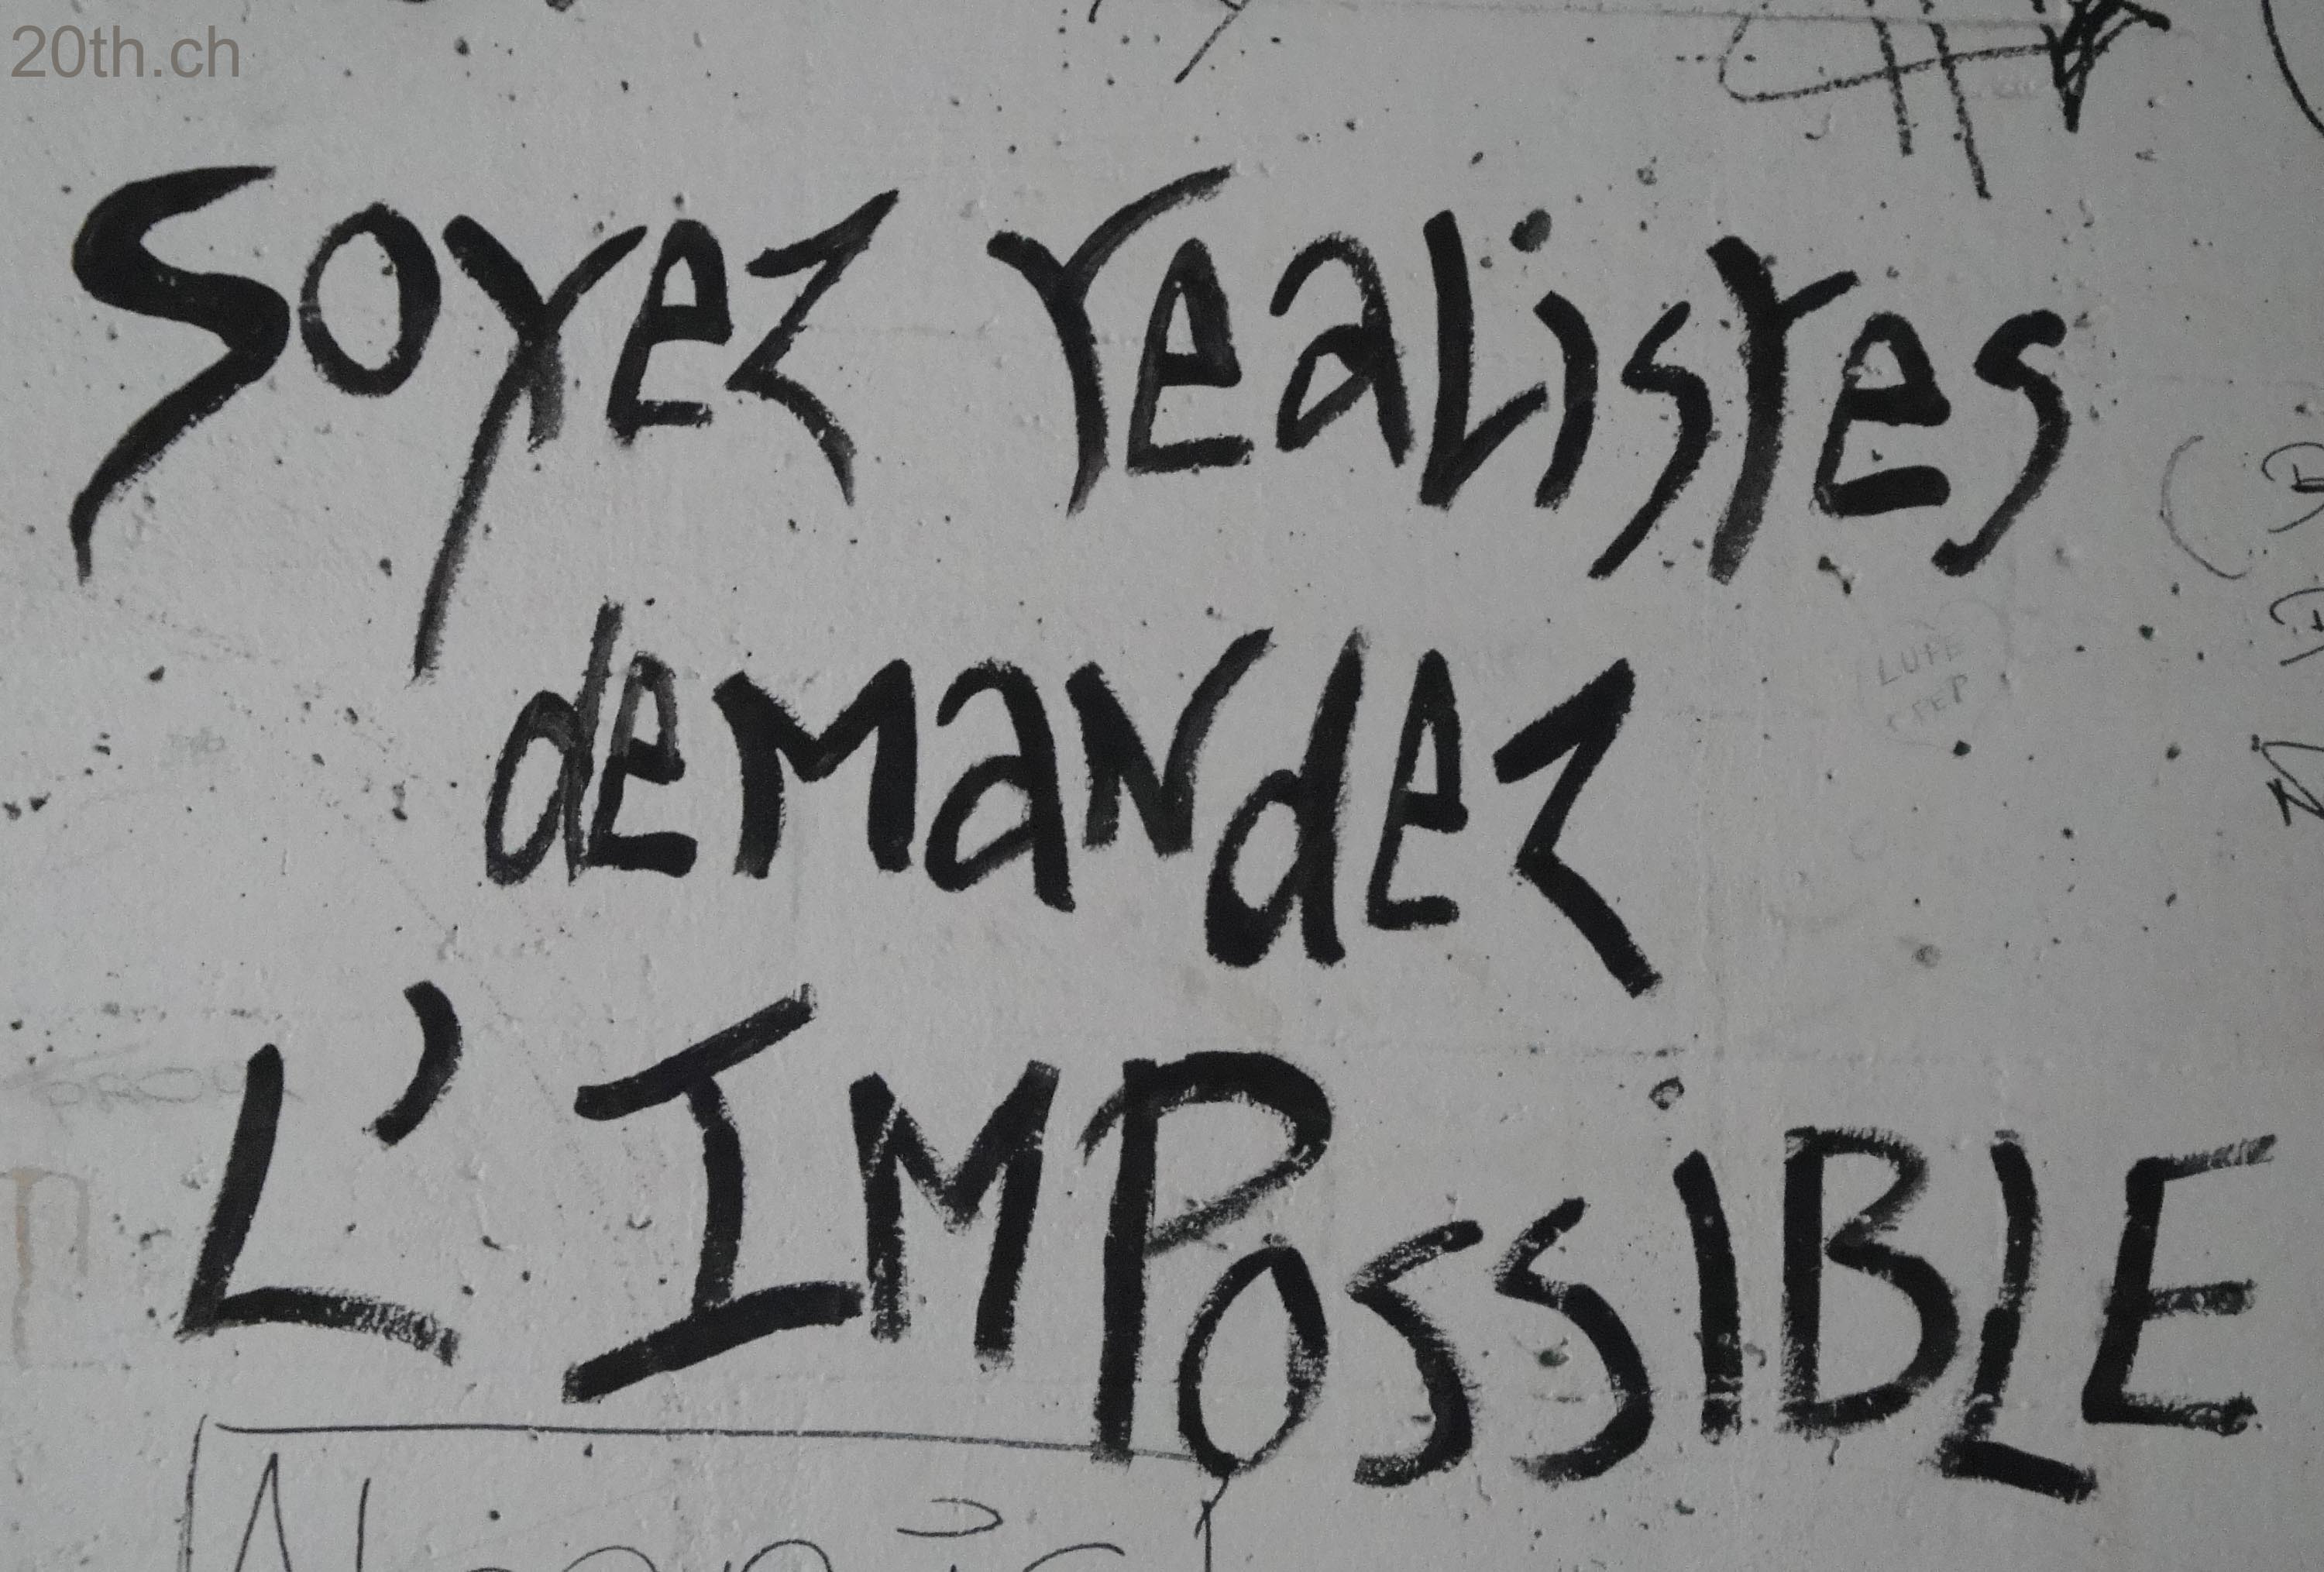 20th.ch
Soyez realistes
demandez
L'IMPOSSIBLE